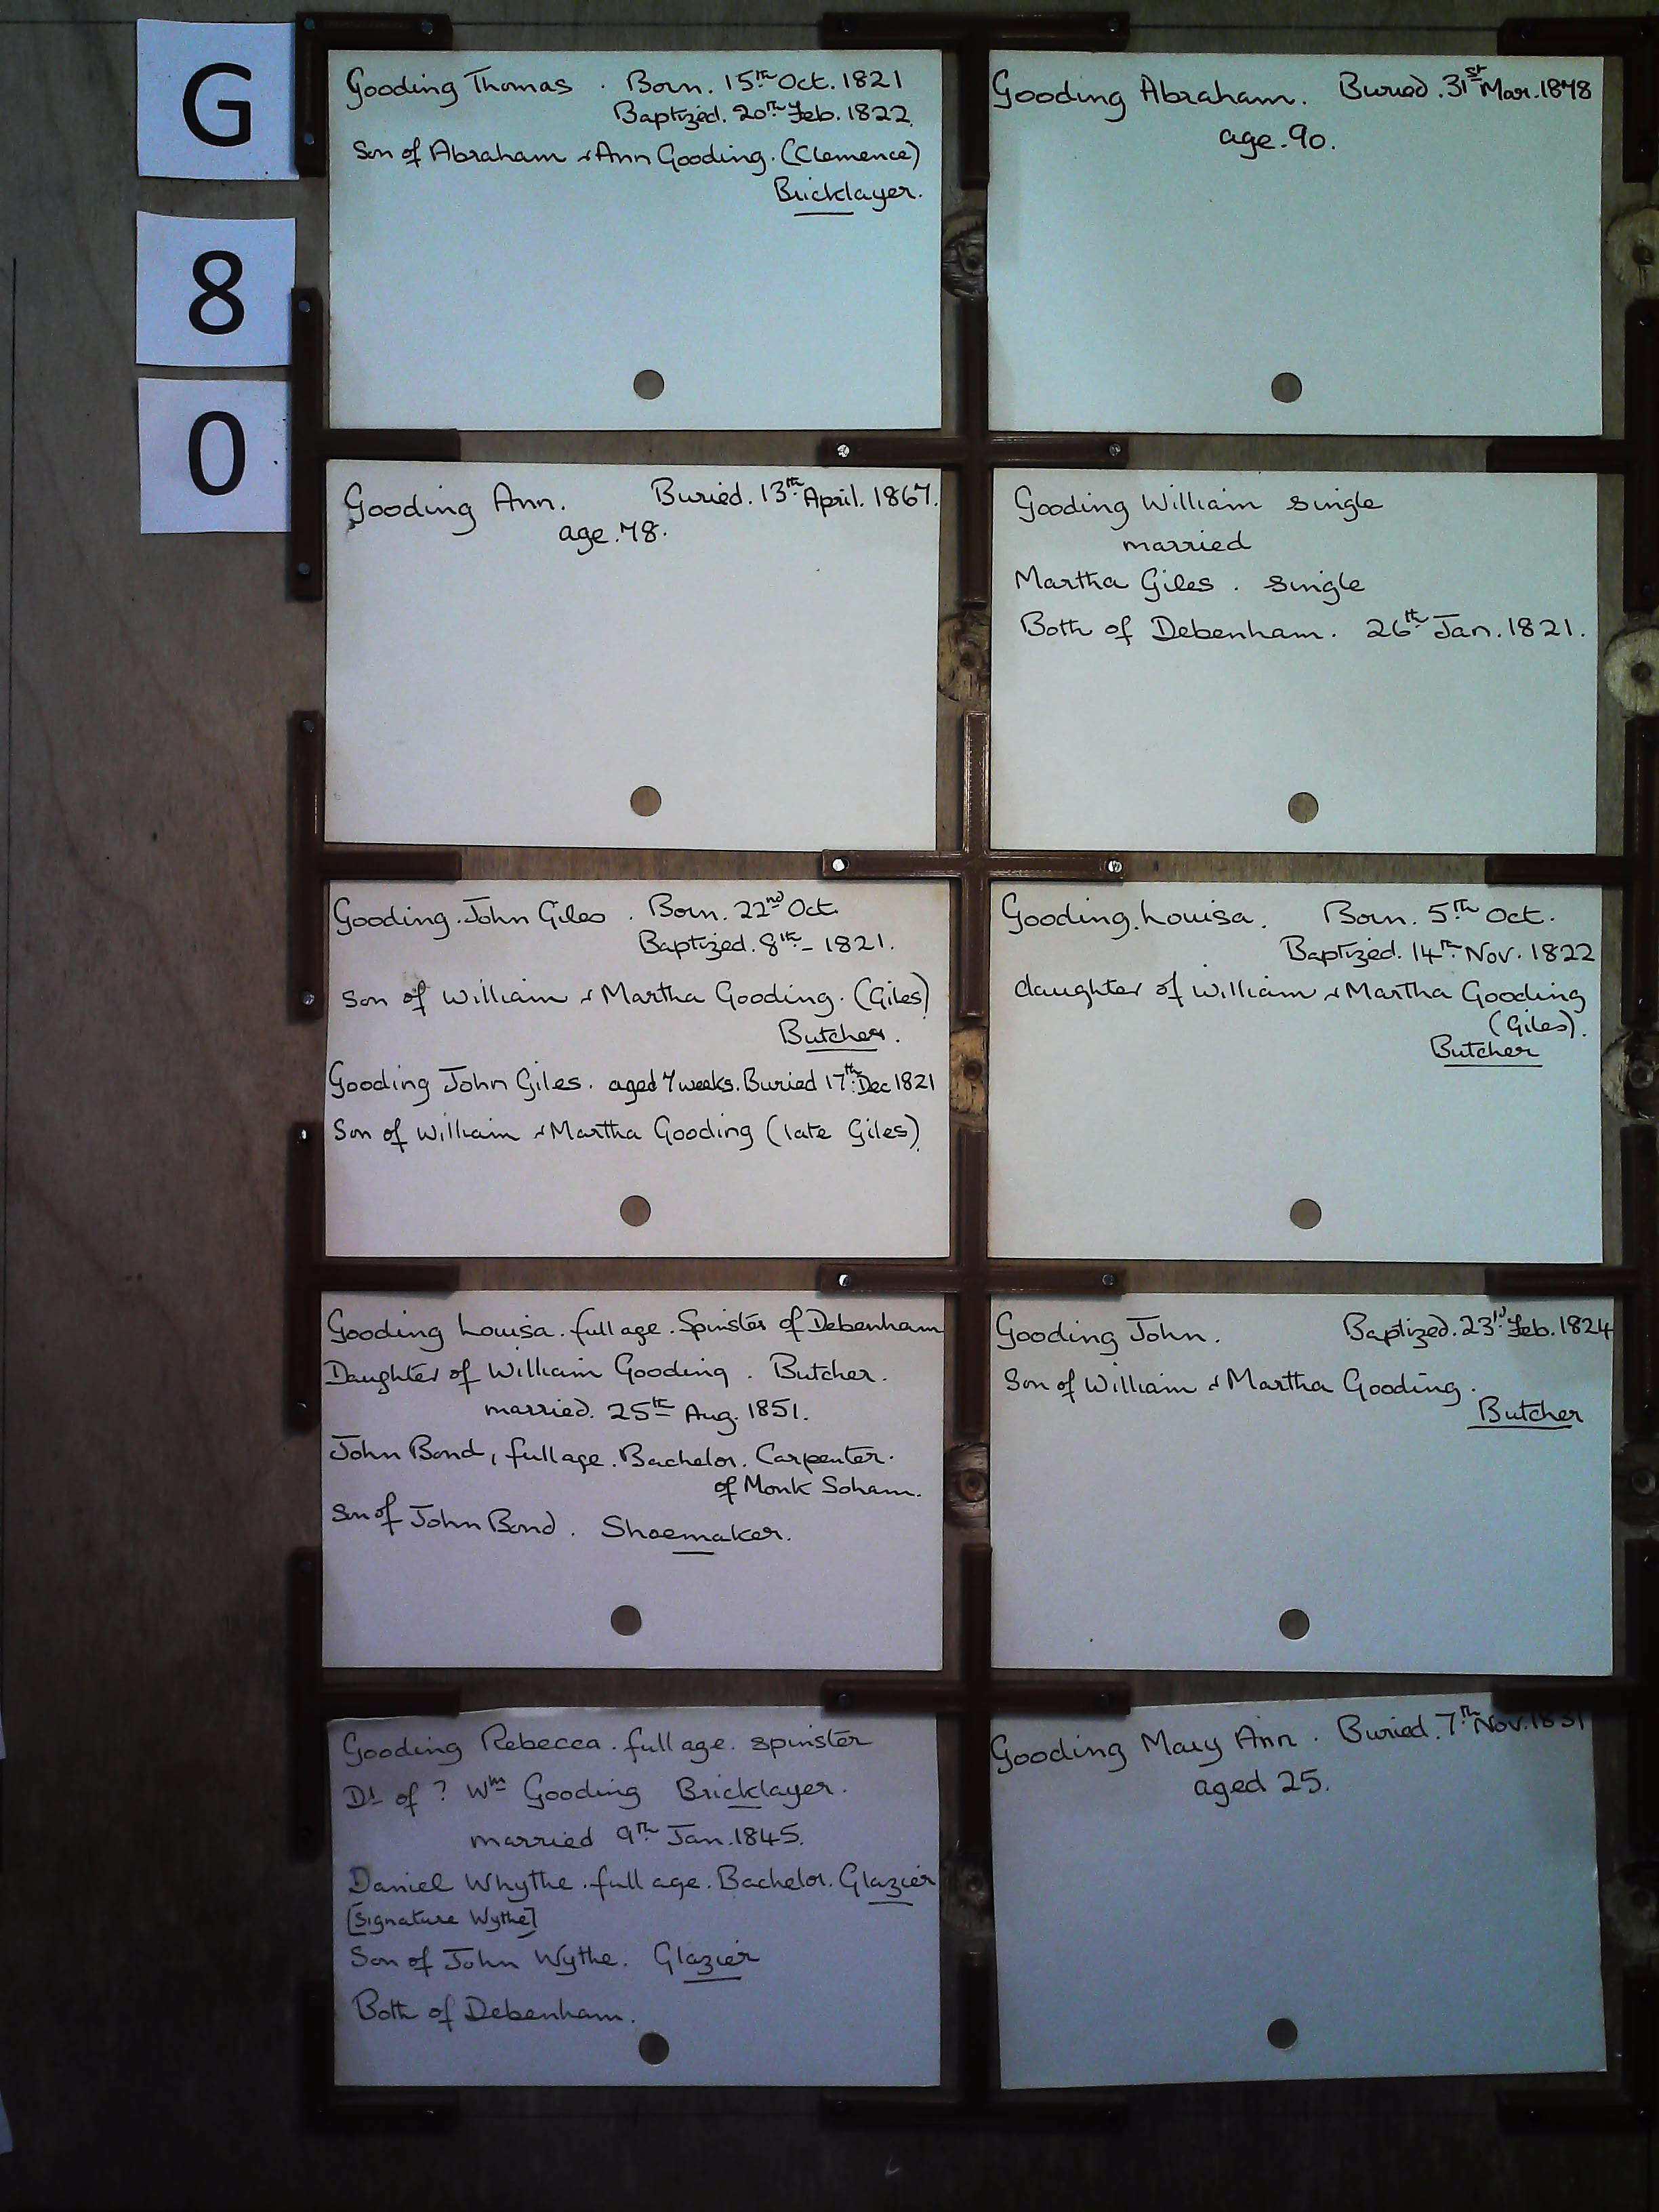 G
8
0
Gooding Thomas . Born. 15th Oct. 1821
Baptized. 20th Feb. 1822.
Son of Abraham & Ann Gooding. (Clemence)
Bricklayer.
Gooding Abraham. Buried. 31st Mar. 1878
age. 90.
Gooding Ann. Buried. 13th April. 1867.
age. 78.
Gooding William single
married
Martha Giles . single
Both of Debenham. 26th Jan. 1821.
Gooding. John Giles . Born. 22nd Oct.
Baptized. 8th - 1821.
Son of William & Martha Gooding. (Giles)
Butcher.
Gooding John Giles. aged 7 weeks. Buried 17th Dec 1821
Son of William & Martha Gooding (late Giles).
Gooding. Louisa. Born. 5th Oct.
Baptized. 14th Nov. 1822
daughter of William & Martha Gooding
(Giles).
Butcher
Gooding Louisa. full age. Spinster of Debenham
Daughter of William Gooding . Butcher.
married. 25th Aug. 1851.
John Bond, full age. Bachelor. Carpenter.
of Monk Soham.
Son of John Bond. Shoemaker.
Gooding John. Baptized. 23rd Feb. 1824
Son of William & Martha Gooding.
Butcher
Gooding Rebecca. full age. spinster
Dt of ? Wm Gooding Bricklayer.
married 9th Jan. 1845.
Daniel Whythe. full age. Bachelor. Glazier
[Signature Wythe]
Son of John Wythe. Glazier
Both of Debenham.
Gooding Mary Ann . Buried. 7th Nov. 1831
aged 25.